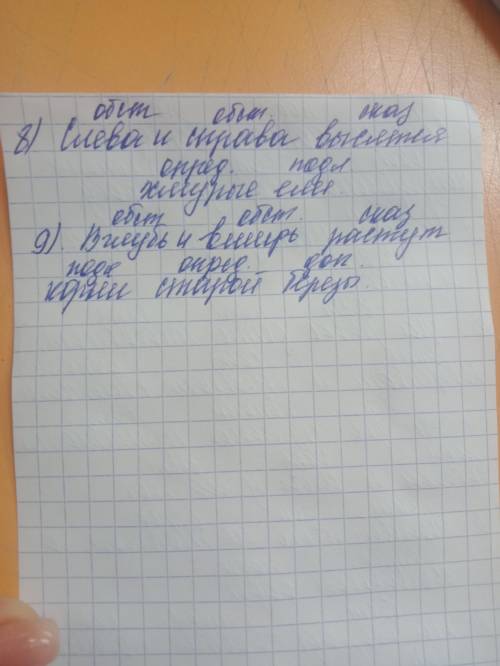 обст обст. сказ
8) Слева и справа высятся
опред. подл
хмурые ели
обст обст. сказ
9). Вглубь и вширь растут
подл опред. доп.
корни старой берёзы.